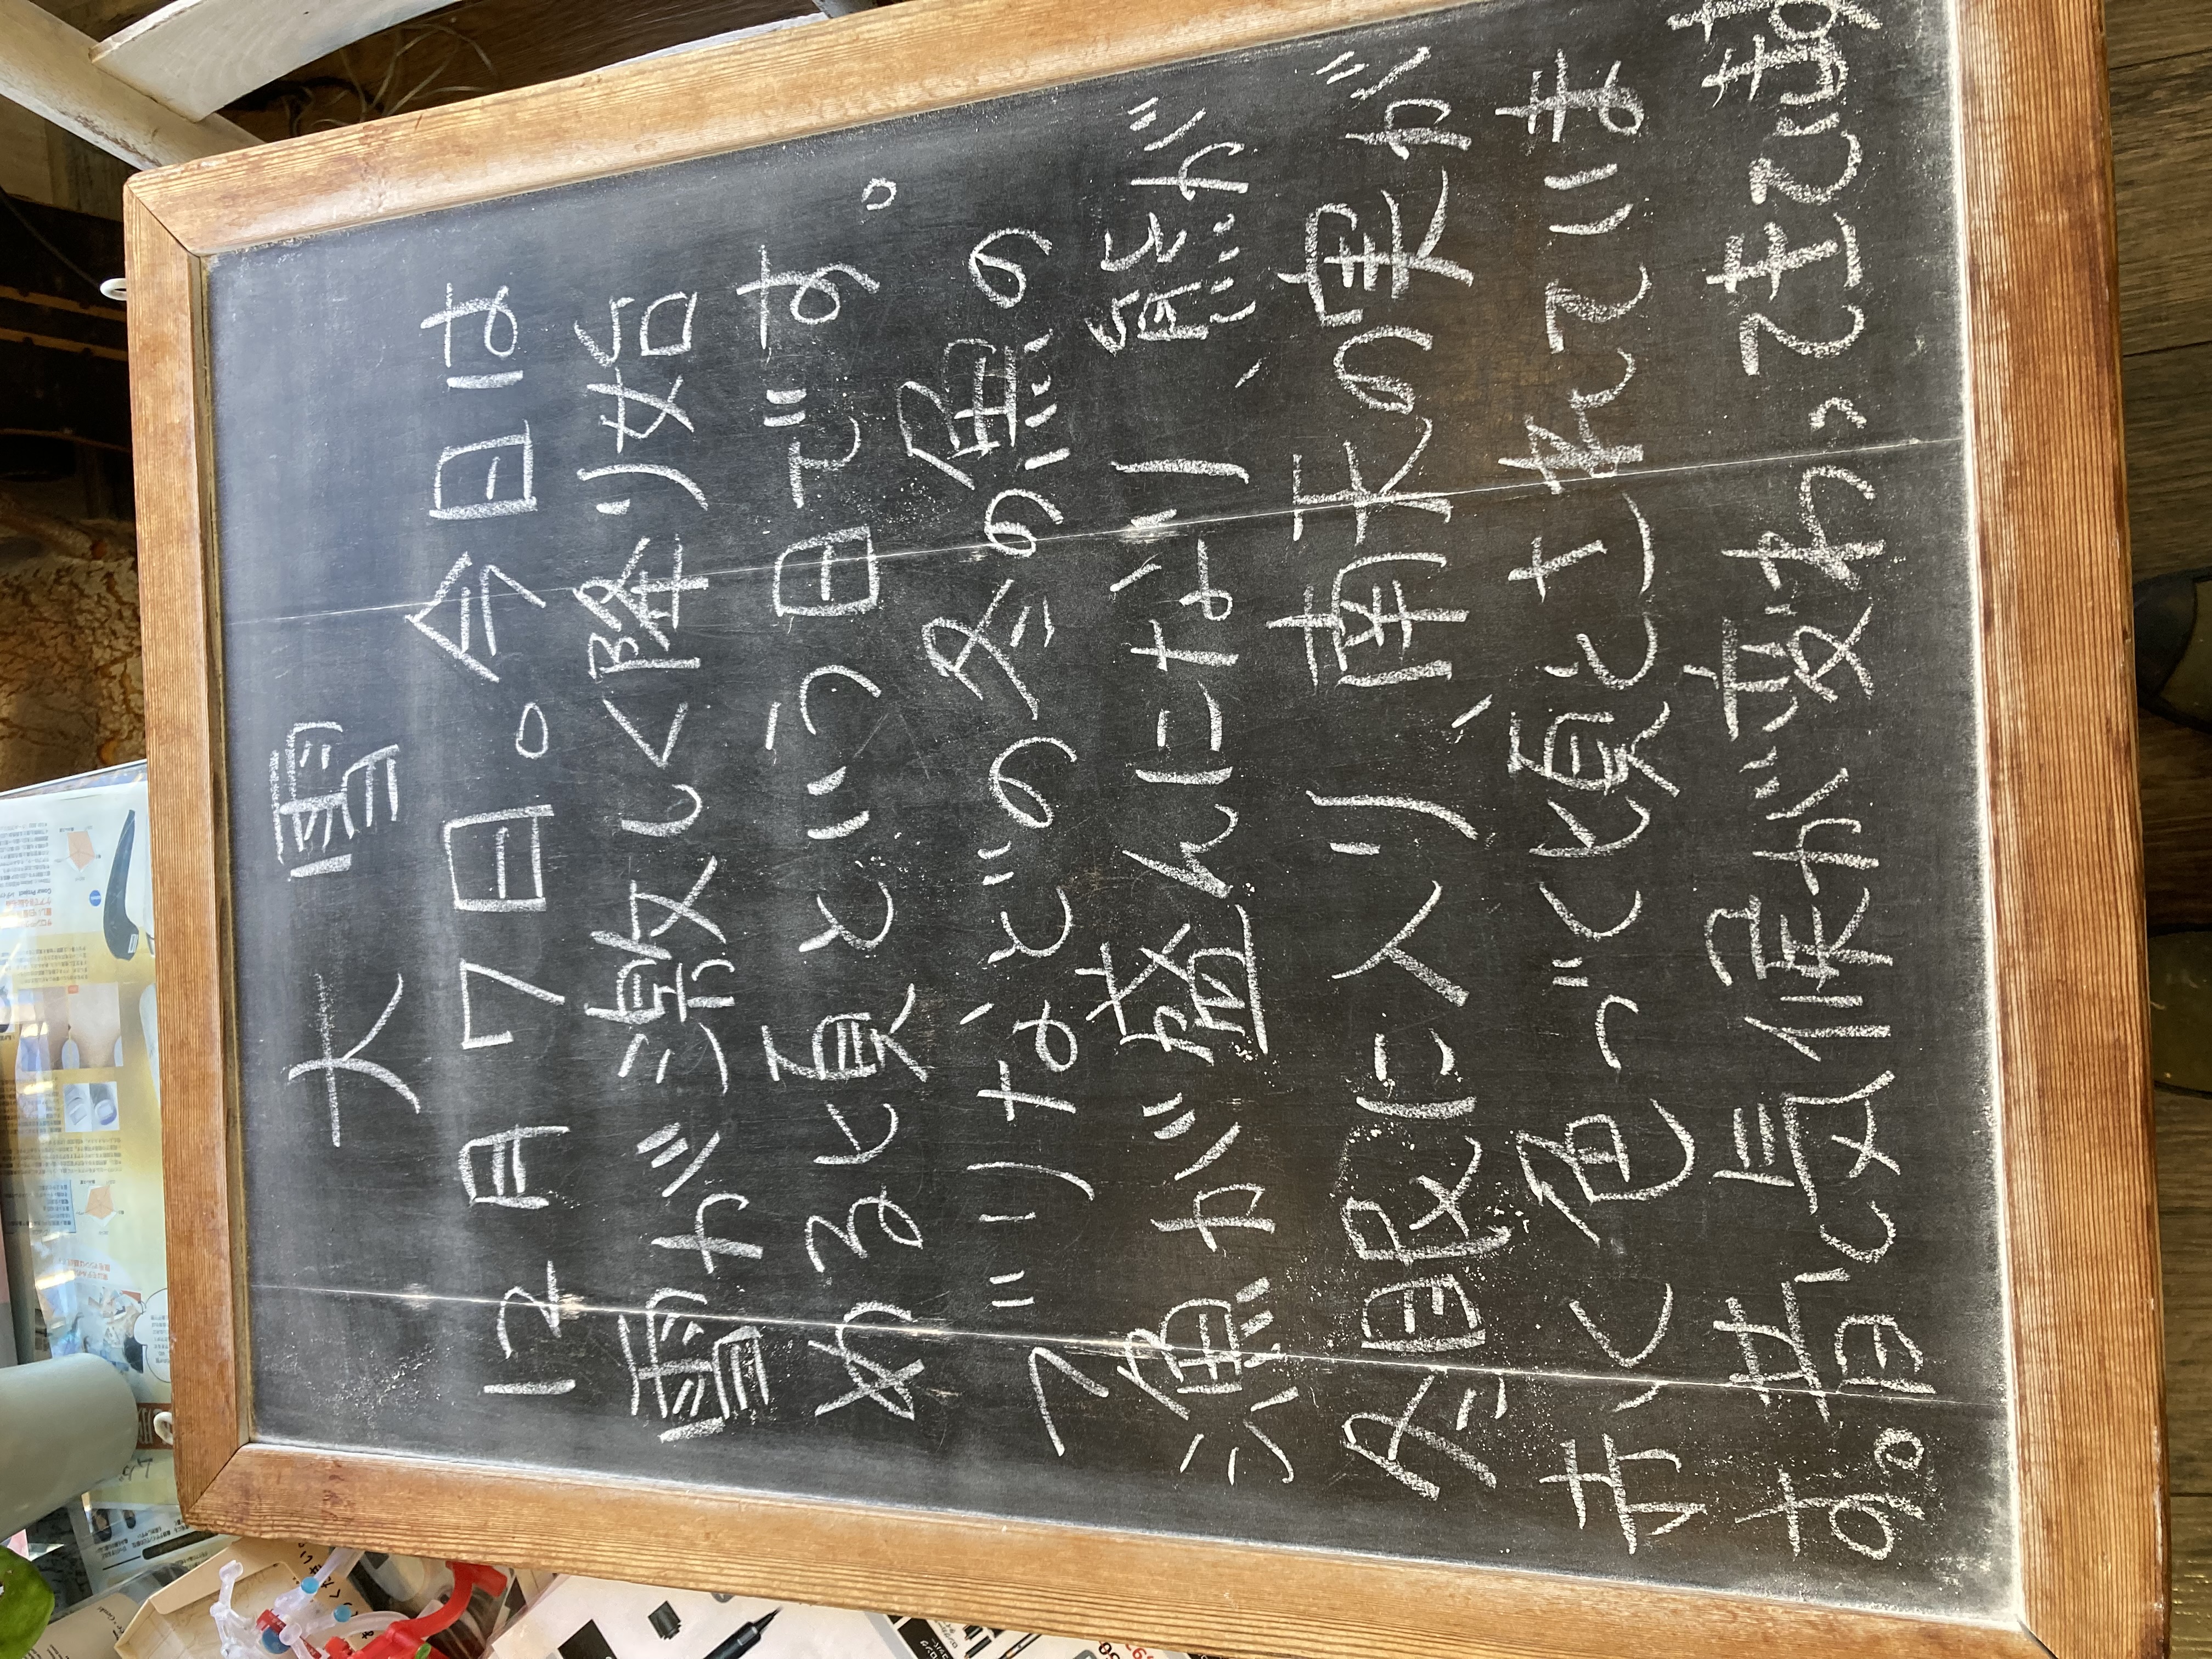 大雪
12月7日。今日は
雪が激しく降り始
める頃という日です。
ブリなどの冬の魚の
漁が盛んになり、熊が
冬眠に入り、南天の実が
赤く色づく頃とされていま
す。昔と気候が変わってきています